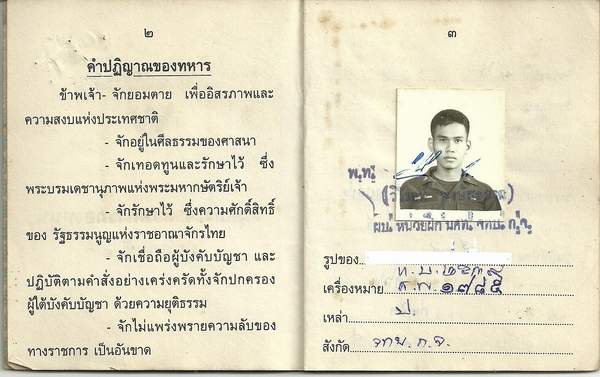 ๒
คำปฏิญาณของทหาร
ข้าพเจ้า- จักยอมตาย เพื่ออิสรภาพและ
ความสงบแห่งประเทศชาติ
- จักอยู่ในศีลธรรมของศาสนา
- จักเทอดทูนและรักษาไว้ ซึ่ง
พระบรมเดชานุภาพแห่งพระมหากษัตริย์เจ้า
- จักรักษาไว้ ซึ่งความศักดิ์สิทธิ์
ของ รัฐธรรมนูญแห่งราชอาณาจักรไทย
- จักเชื่อถือผู้บังคับบัญชา และ
ปฏิบัติตามคำสั่งอย่างเคร่งครัดทั้งจักปกครอง
ผู้ใต้บังคับบัญชา ด้วยความยุติธรรม
- จักไม่แพร่งพรายความลับของ
ทางราชการ เป็นอันขาด
๓
พ.ท.
รูปของ
เครื่องหมาย ๑๗๘๕
เหล่า ป.
สังกัด จทบ. ก.จ.